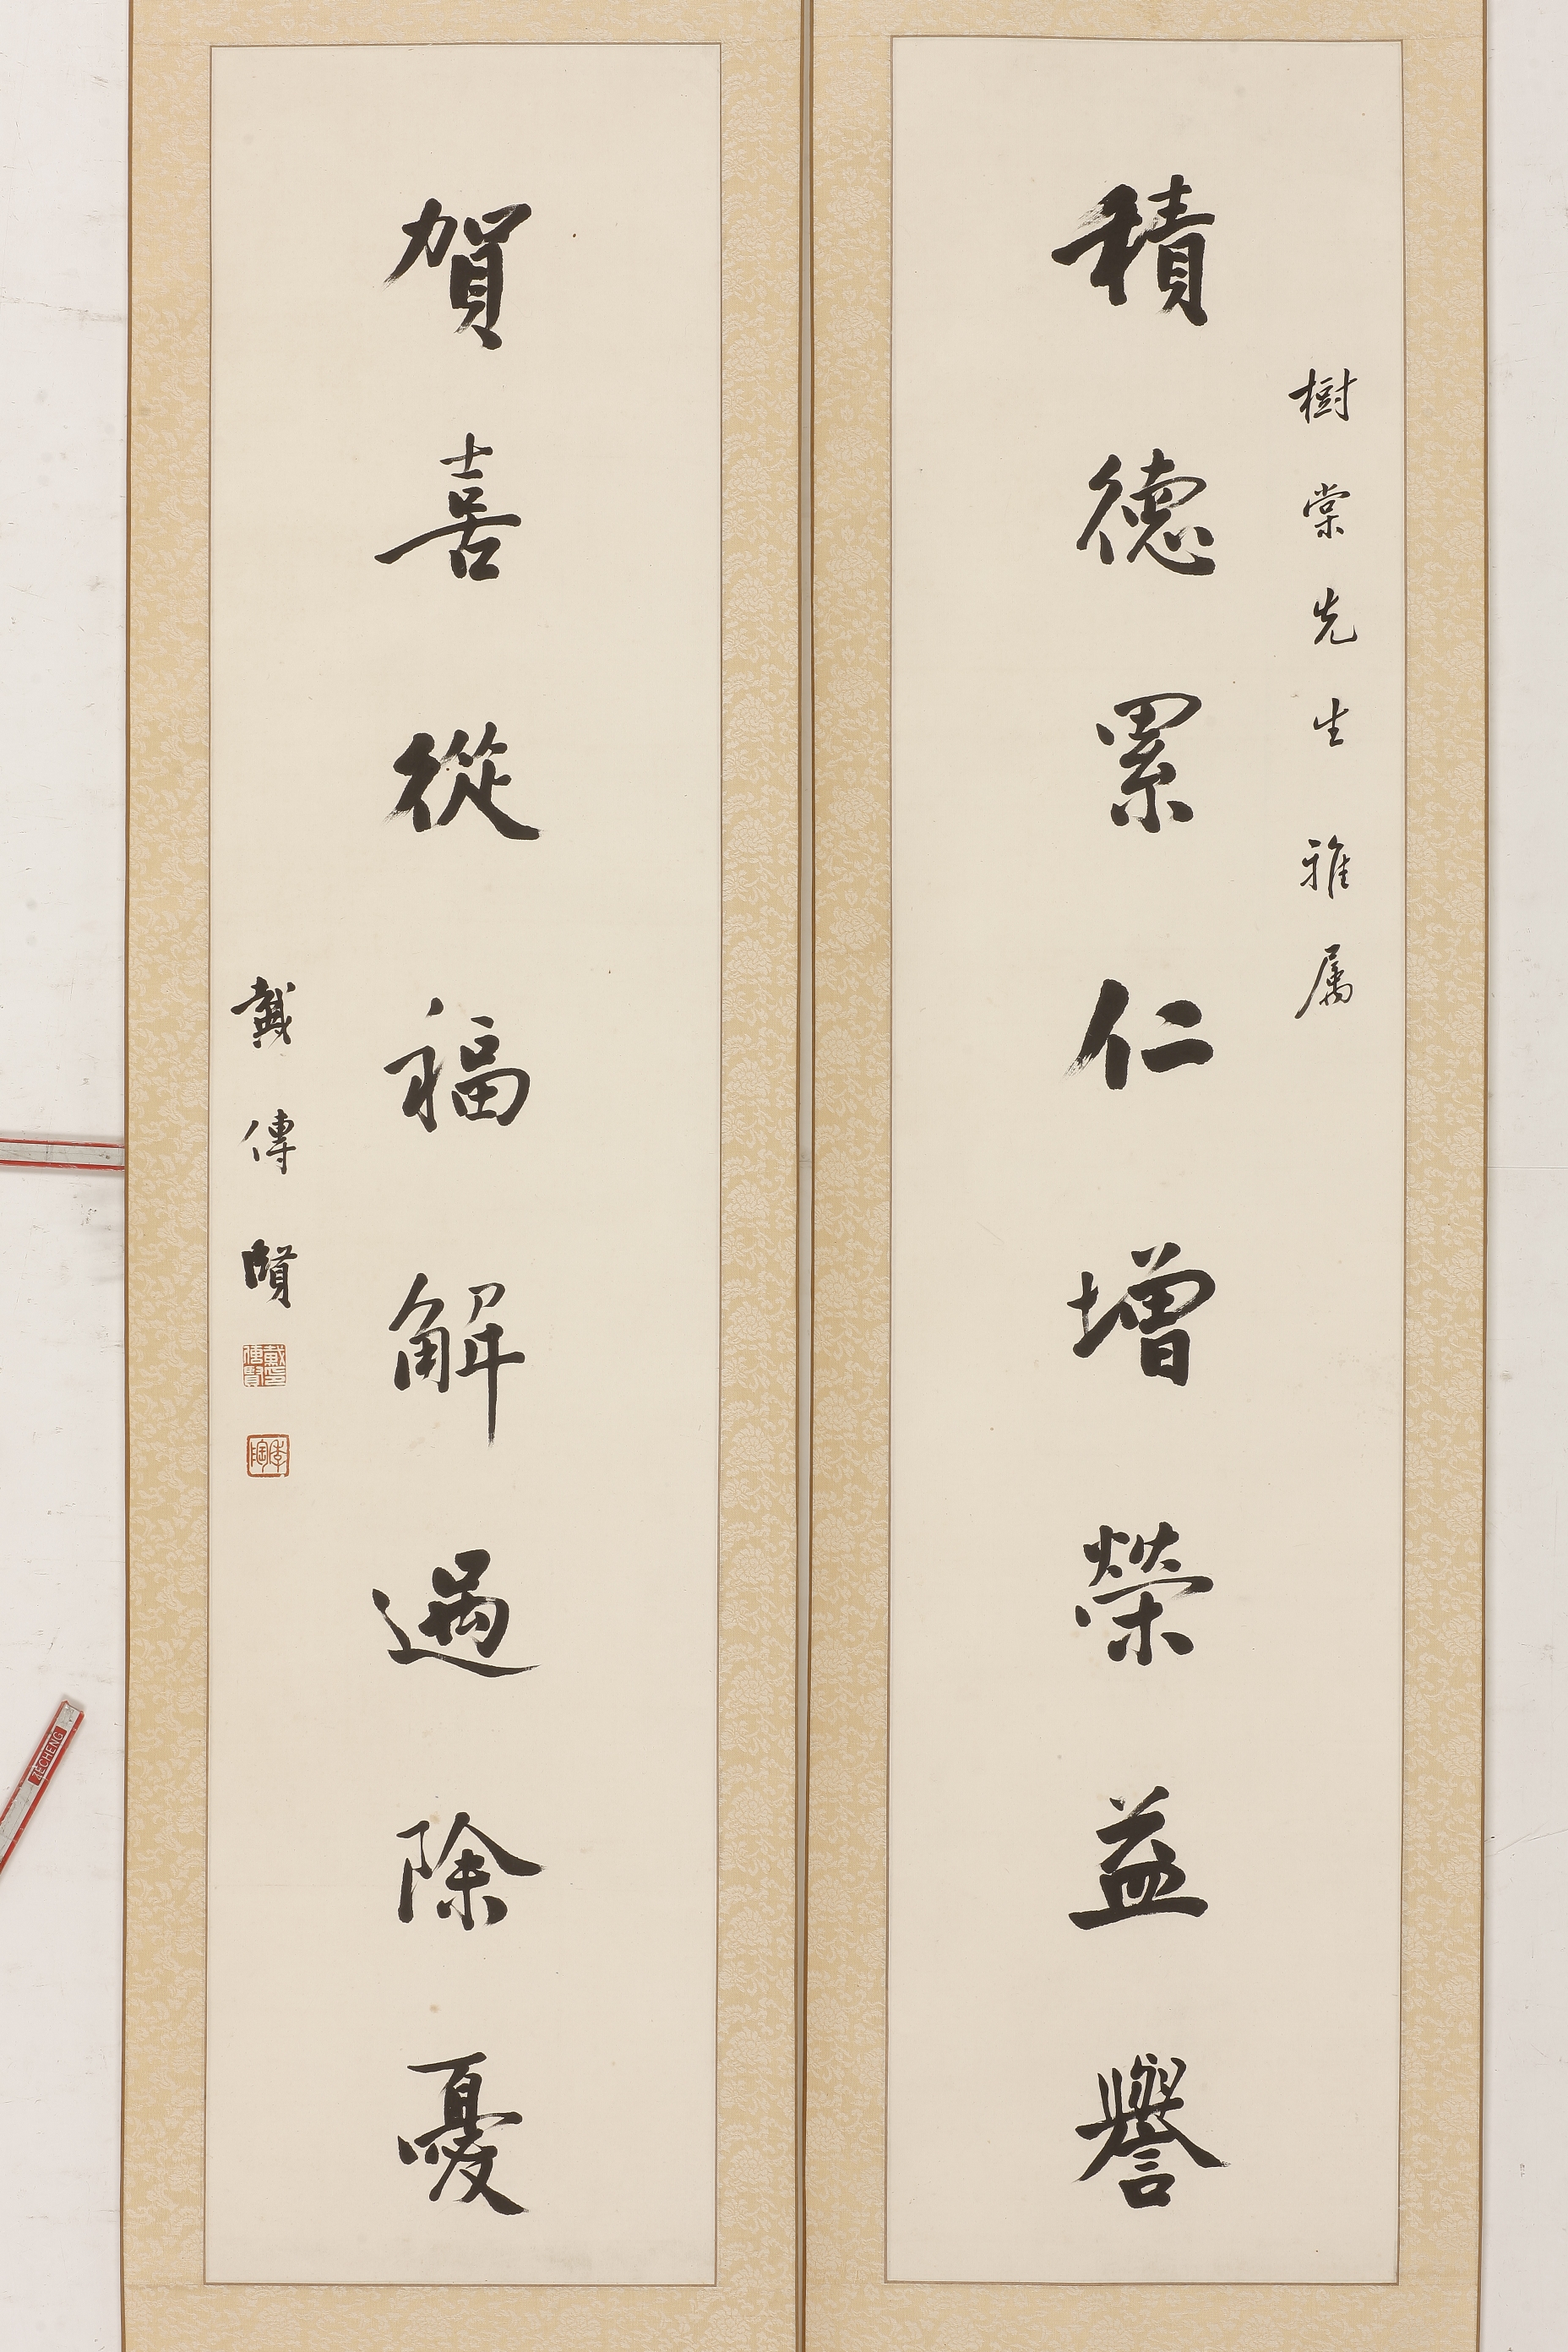 樹棠先生雅屬
積德累仁增榮益譽
賀喜從福解過除憂
戴傳賢
戴傳賢印
季陶
ZECHENG